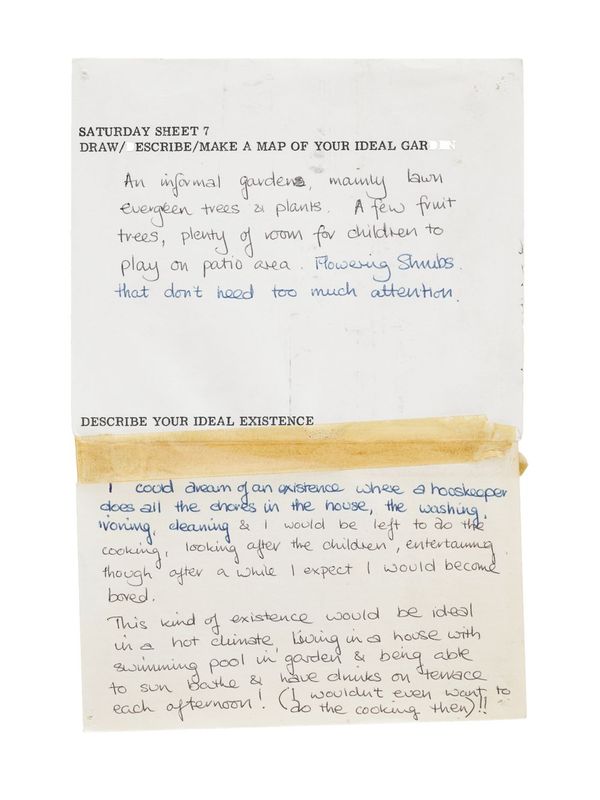 SATURDAY SHEET 7
DRAW/DESCRIBE/MAKE A MAP OF YOUR IDEAL GARDEN
An informal gardens, mainly lawn
evergeen trees & plants. A few fruit
trees, plenty of room for children to
play on patio area. Flowering Shrubs.
that don't need too much attention.
DESCRIBE YOUR IDEAL EXISTENCE
I could dream of an existence where a hooskeeper
does all the chores in the house, the washing,
ironing, cleaning & I would be left to do the
cooking, looking after the children, entertaining
though after a while I expect I would become
bored.
This kind of existence would be ideal
in a hot climate, living in a house with
swimming pool in garden & being able
to sun bathe & have drinks on terrace
each afternoon! (I wouldn't even want to
do the cooking then)!!